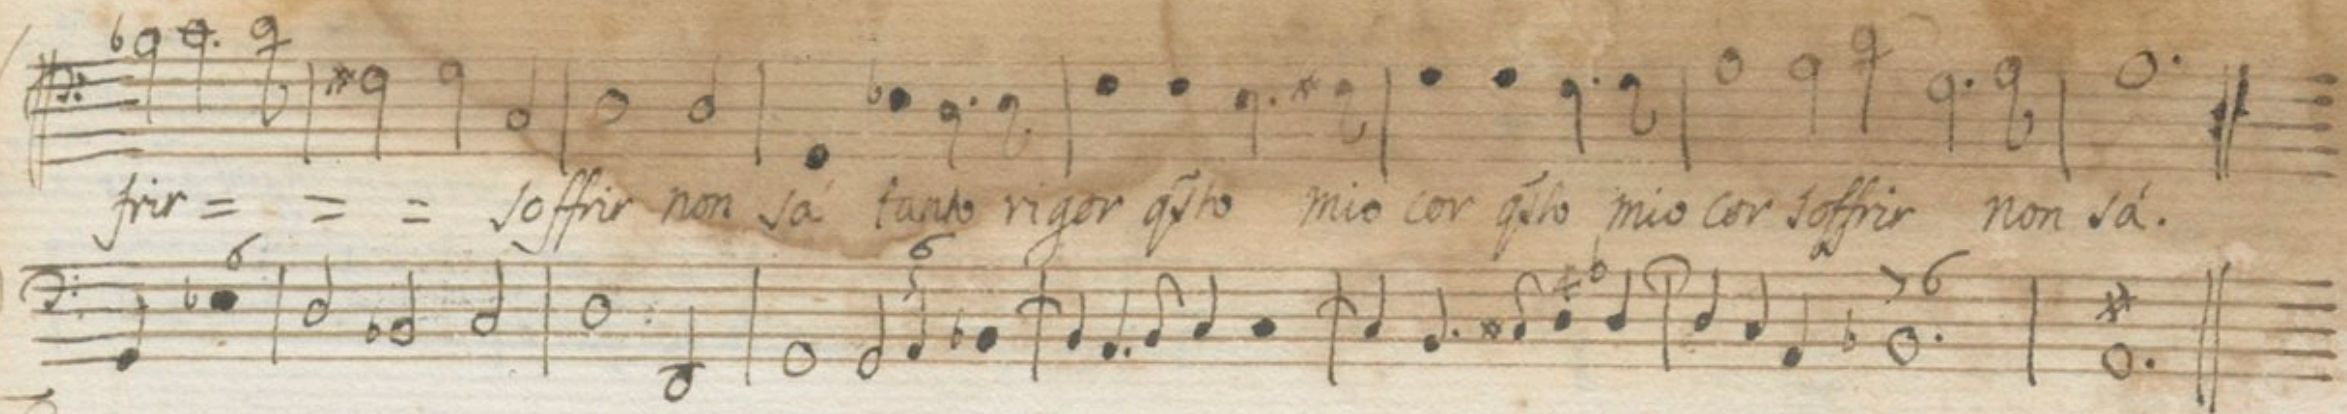 frir = = = soffrir non sá tanto rigor qsto mio cor qsto mio cor soffrir non sá.
6 6 5 6 7 6